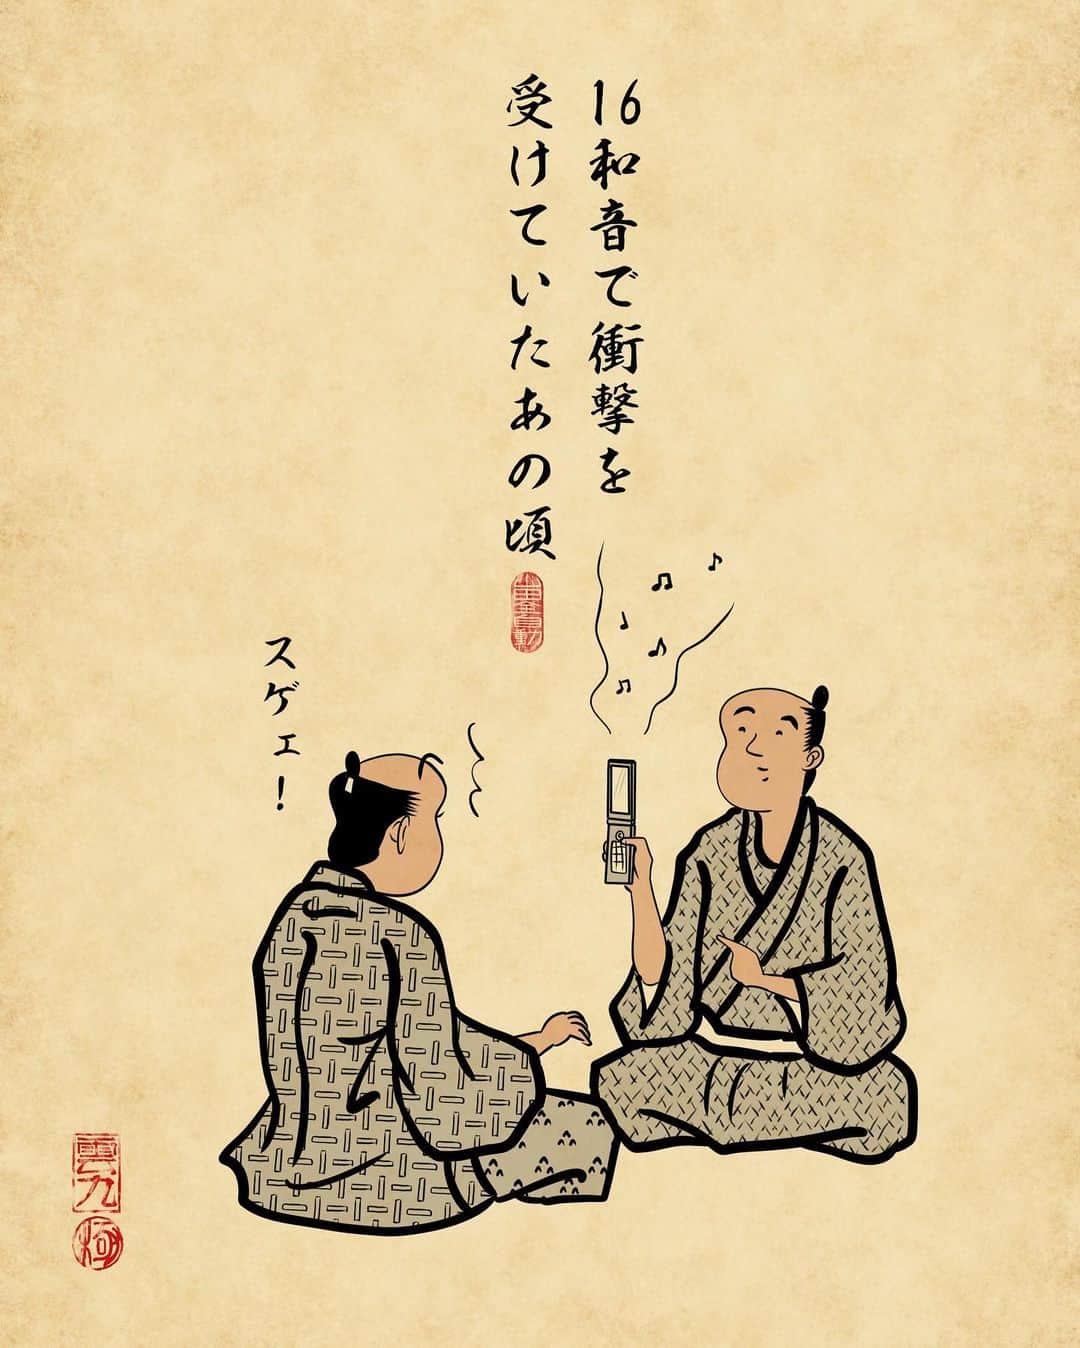 16和音で衝撃を
受けていたあの頃
スゲェ!